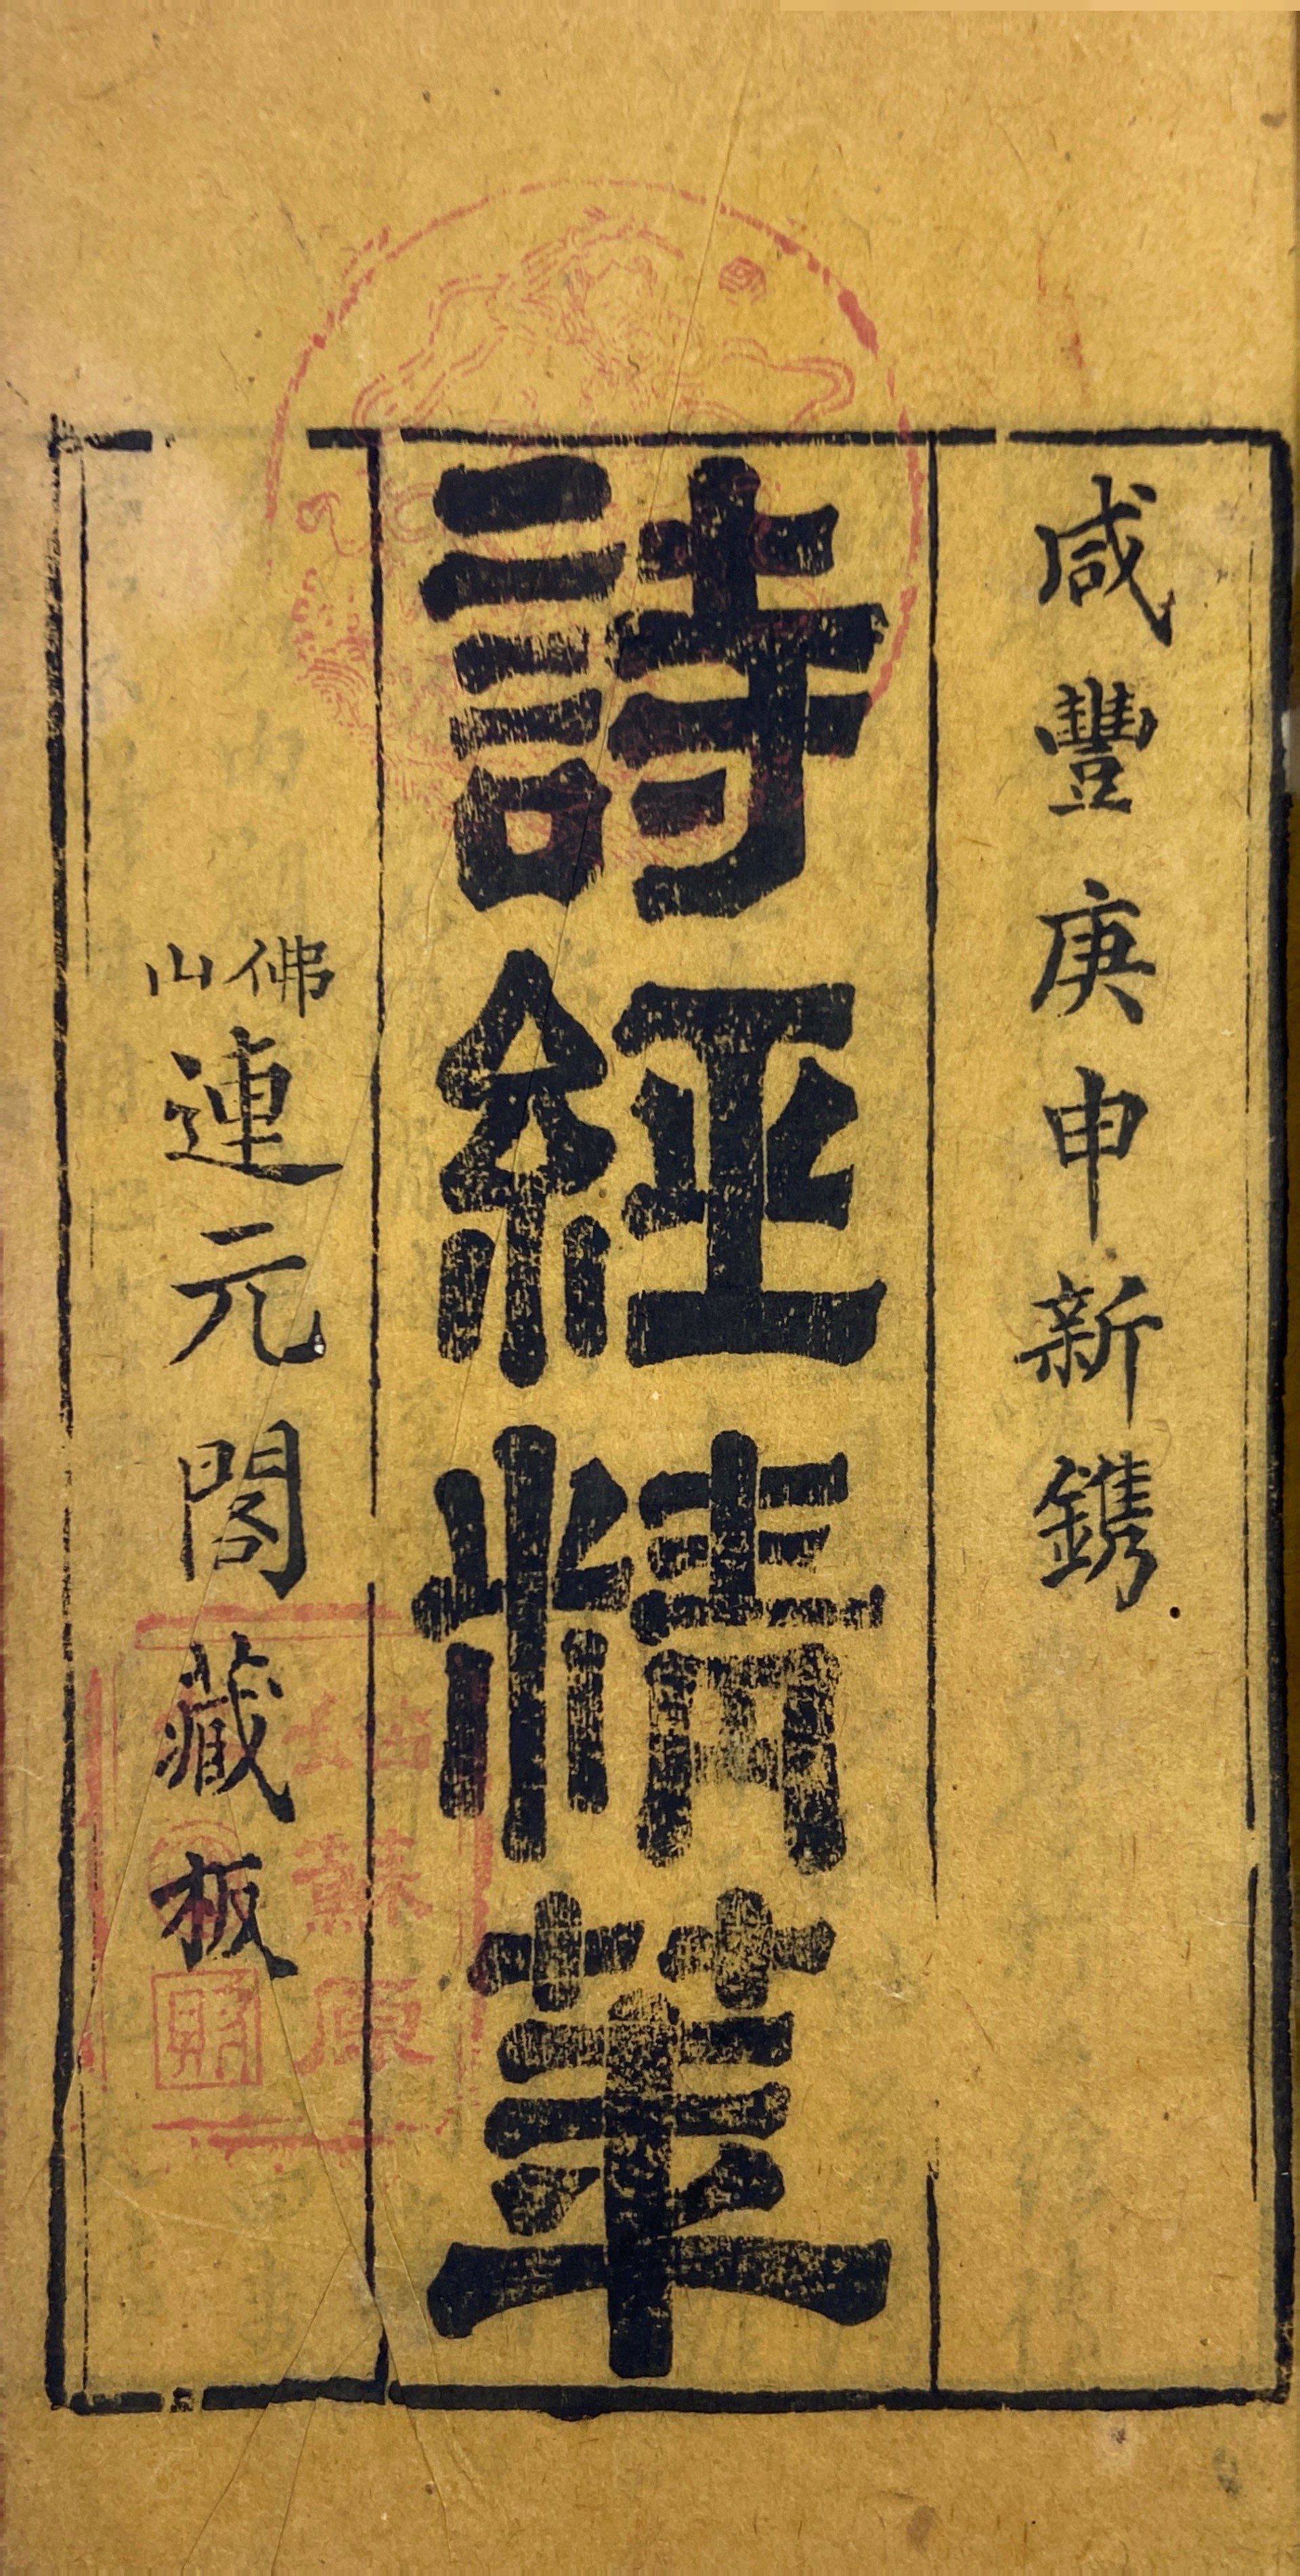 咸豐庚申新鐫
詩經精華
佛山
連元閣藏板